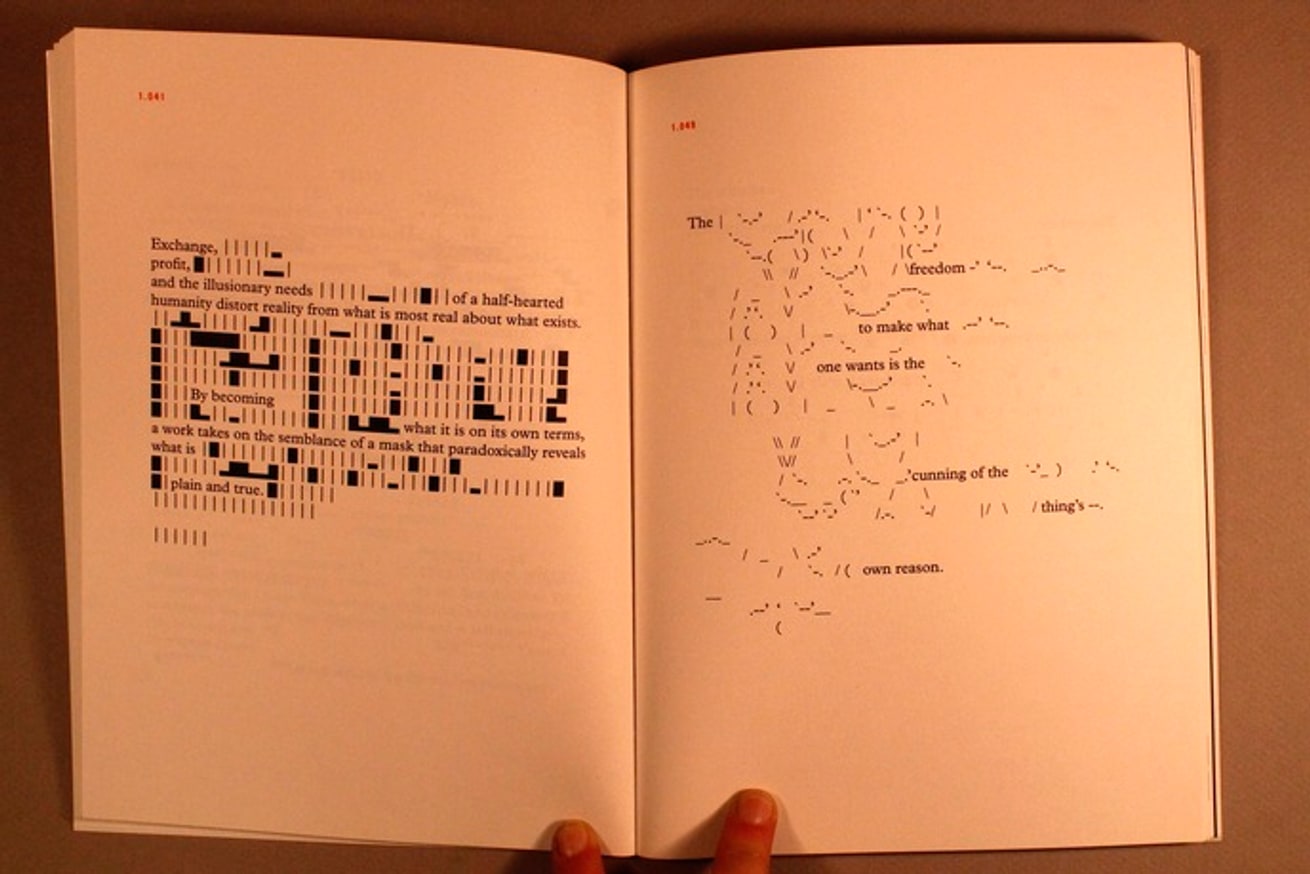 1.041
Exchange,
profit,
and the illusionary needs of a half-hearted
humanity distort reality from what is most real about what exists.
By becoming
what it is on its own terms,
a work takes on the semblance of a mask that paradoxically reveals
what is
plain and true.
The
freedom
to make what
one wants is the
cunning of the
thing's
own reason.